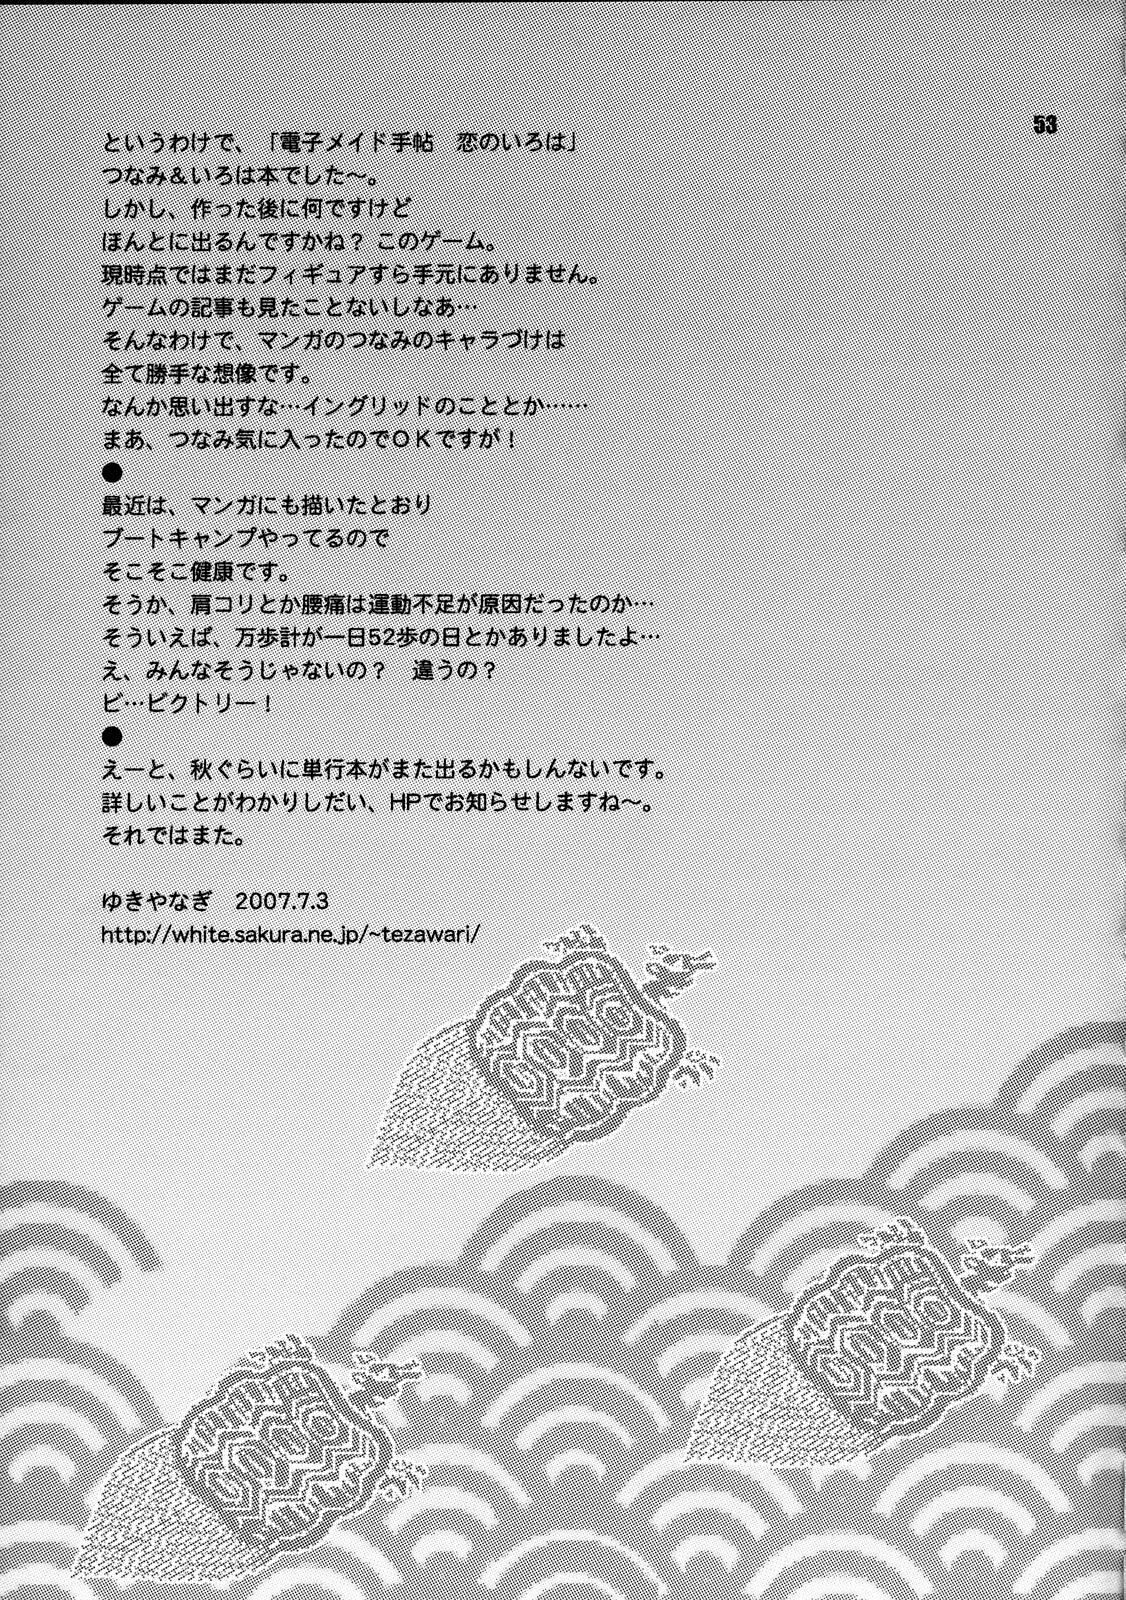 53
というわけで、「電子メイド手帖　恋のいろは」
つなみ＆いろは本でした〜。
しかし、作った後に何ですけど
ほんとに出るんですかね？ このゲーム。
現時点ではまだフィギュアすら手元にありません。
ゲームの記事も見たことないしなあ…
そんなわけで、マンガのつなみのキャラづけは
全て勝手な想像です。
なんか思い出すな…イングリッドのこととか……
まあ、つなみ気に入ったのでＯＫですが！
●
最近は、マンガにも描いたとおり
ブートキャンプやってるので
そこそこ健康です。
そうか、肩コリとか腰痛は運動不足が原因だったのか…
そういえば、万歩計が一日52歩の日とかありましたよ…
え、みんなそうじゃないの？　違うの？
ビ…ビクトリー！
●
えーと、秋ぐらいに単行本がまた出るかもしんないです。
詳しいことがわかりしだい、HPでお知らせしますね〜。
それではまた。
ゆきやなぎ　2007.7.3
http://white.sakura.ne.jp/~tezawari/